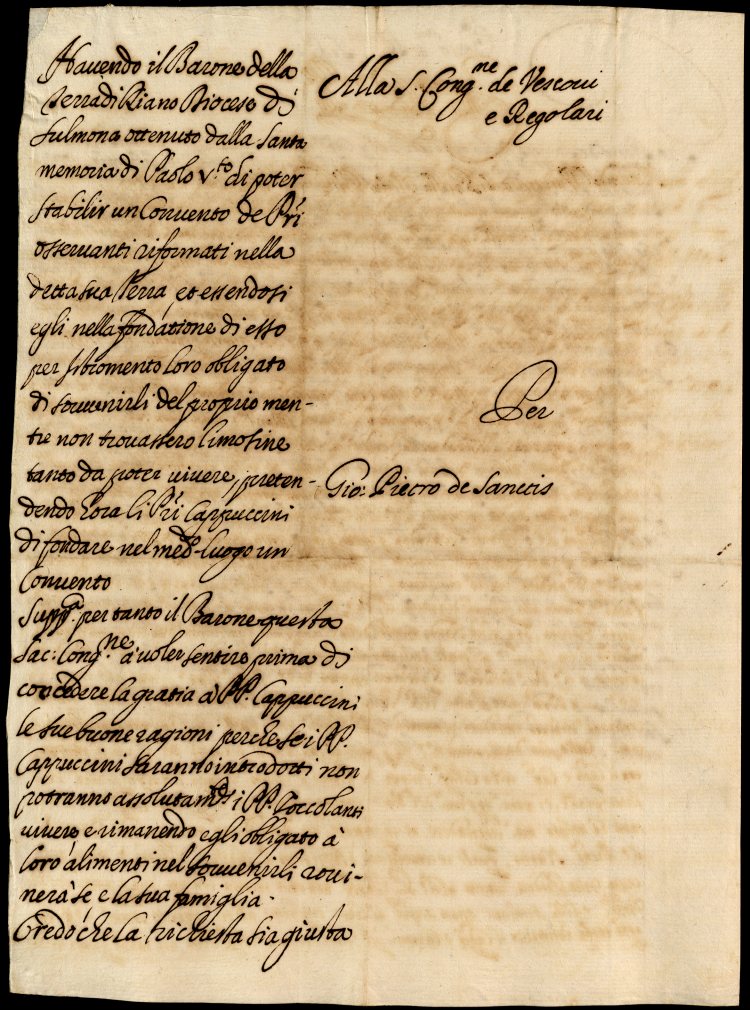 Havendo il Barone della
Terra di Riano Diocese di
Sulmona ottenuto dalla Santa
memoria di Paolo V.to di poter
stabilir un Convento de Pri
osservanti riformati nella
detta sua Terra, et essendosi
egli nella fondatione di esso
per istromento loro obligato
di souuenirli del proprio men-
tre non trouassero limosine
tanto da poter uiuere, preten-
dendo hora li Pri Cappuccini
di fondare nel med.o luogo un
Conuento
Supp.a per tanto il Barone questa
Sac: Cong.ne a uoler sentire prima di
concedere la gratia à PP. Cappuccini
le sue buone ragioni perche se i PP.
Cappuccini saranno introdotti non
potranno assolutam.te i PP. Zoccolanti
uiuere, e rimanendo egli obligato à
loro alimenti nel souuenirli roui-
nerà se, e la sua famiglia.
Credo che la richiesta sia giusta
Alla S. Cong.ne de Vescoui
e Regolari
Per
Gio: Pietro de Sanctis